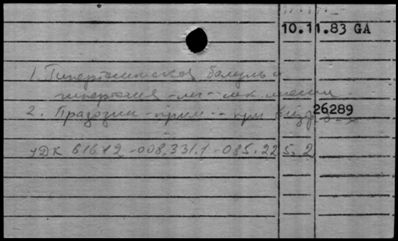 10.11.83 GA
1. Гипертоническая болезнь и
гипертония -
2. Празозин - прим. - при
26289
УДК 616.12-008.331.1-085.225.2